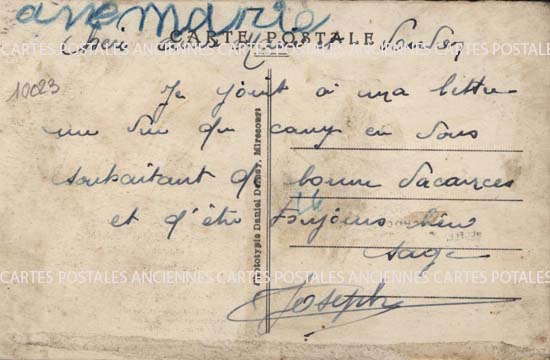 anemarie
CARTE POSTALE
10023
Je joint a ma lettre
une vue du camp en vous
souhaitant de bonne vacances
et d'être toujours bien
sage
Joseph
Phototypie Daniel Delboy, Mirecourt
CARTES POSTALES ANCIENNES CARTES POSTALES ANCIENNES CARTES POSTALES
CARTES POSTALES ANCIENNES CARTES POSTALES ANCIENNES CARTES POSTALES